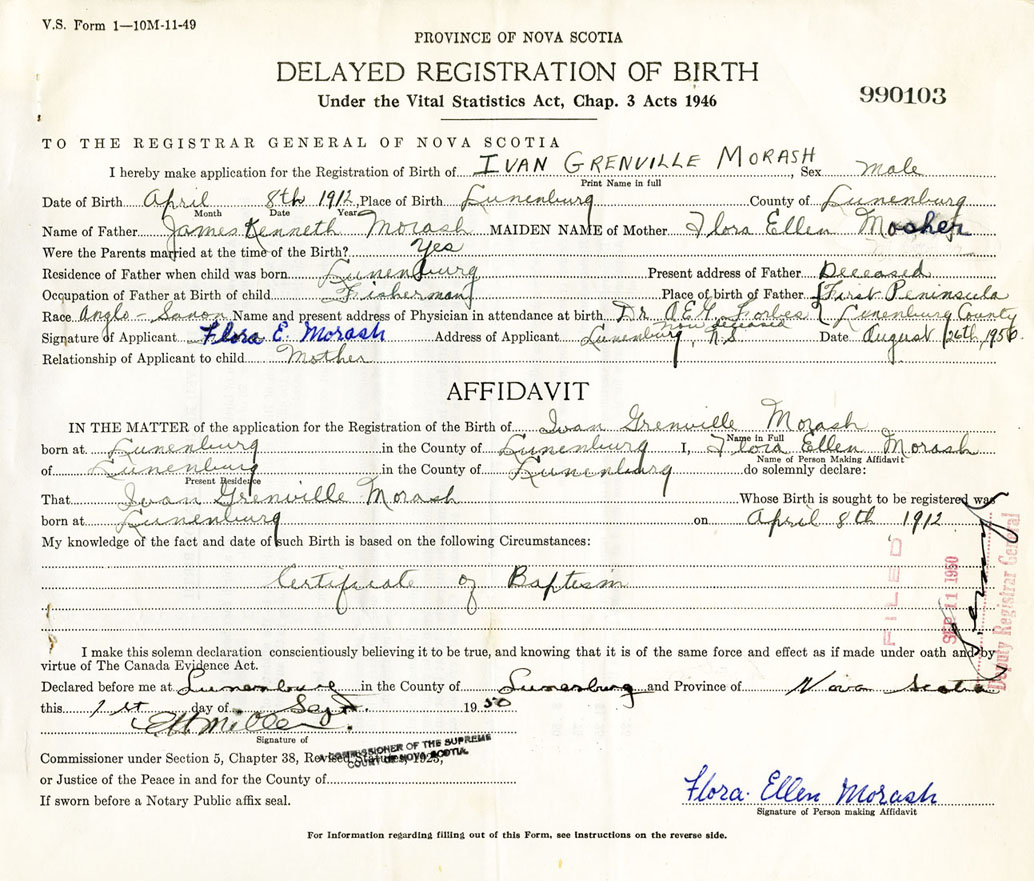 V.S. Form 1—10M-11-49
PROVINCE OF NOVA SCOTIA
DELAYED REGISTRATION OF BIRTH
Under the Vital Statistics Act, Chap. 3 Acts 1946
990103
TO THE REGISTRAR GENERAL OF NOVA SCOTIA
I hereby make application for the Registration of Birth of IVAN GRENVILLE MORASH, Sex Male
Print Name in full
Date of Birth April 8th 1912, Place of Birth Lunenburg County of Lunenburg
Month Date Year
Name of Father James Kenneth Morash MAIDEN NAME of Mother Flora Ellen Mosher
Were the Parents married at the time of the Birth? Yes
Residence of Father when child was born Lunenburg Present address of Father Deceased
Occupation of Father at Birth of child Fisherman Place of birth of Father First Peninsula
Race Anglo-Saxon Name and present address of Physician in attendance at birth Dr. A.E.G. Forbes Lunenburg County
now deceased
Signature of Applicant Flora E. Morash Address of Applicant Lunenburg, N.S. Date August 26th, 1950.
Relationship of Applicant to child Mother
AFFIDAVIT
IN THE MATTER of the application for the Registration of the Birth of Ivan Grenville Morash
Name in Full
born at Lunenburg in the County of Lunenburg I, Flora Ellen Morash
Name of Person Making Affidavit
of Lunenburg in the County of Lunenburg do solemnly declare:
Present Residence
That Ivan Grenville Morash Whose Birth is sought to be registered was
born at Lunenburg on April 8th 1912
My knowledge of the fact and date of such Birth is based on the following Circumstances:
Certificate of Baptism
FILED
SEP 11 1950
Deputy Registrar General
I make this solemn declaration conscientiously believing it to be true, and knowing that it is of the same force and effect as if made under oath and by
virtue of The Canada Evidence Act.
Declared before me at Lunenburg in the County of Lunenburg and Province of Nova Scotia
this 1st day of Sept. 1950
Signature of
Commissioner under Section 5, Chapter 38, Revised Statutes, 1923,
COMMISSIONER OF THE SUPREME
COURT OF NOVA SCOTIA.
or Justice of the Peace in and for the County of
If sworn before a Notary Public affix seal.
Flora Ellen Morash
Signature of Person making Affidavit
For Information regarding filling out of this Form, see instructions on the reverse side.